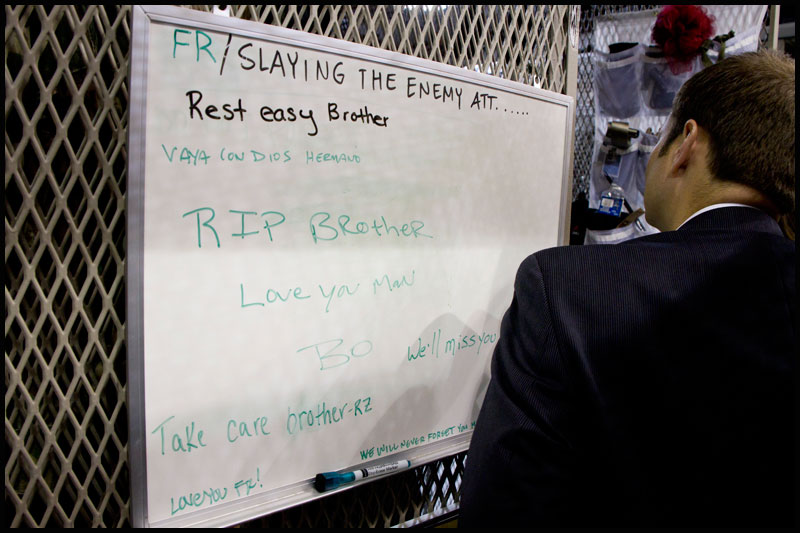 FR/SLAYING THE ENEMY ATT......
Rest easy Brother
VAYA CON DIOS HERMANO
RIP BROTHER
Love you MAN
BO
We'll miss you
Take care brother-RZ
WE WILL NEVER FORGET YOU
Love you FR!